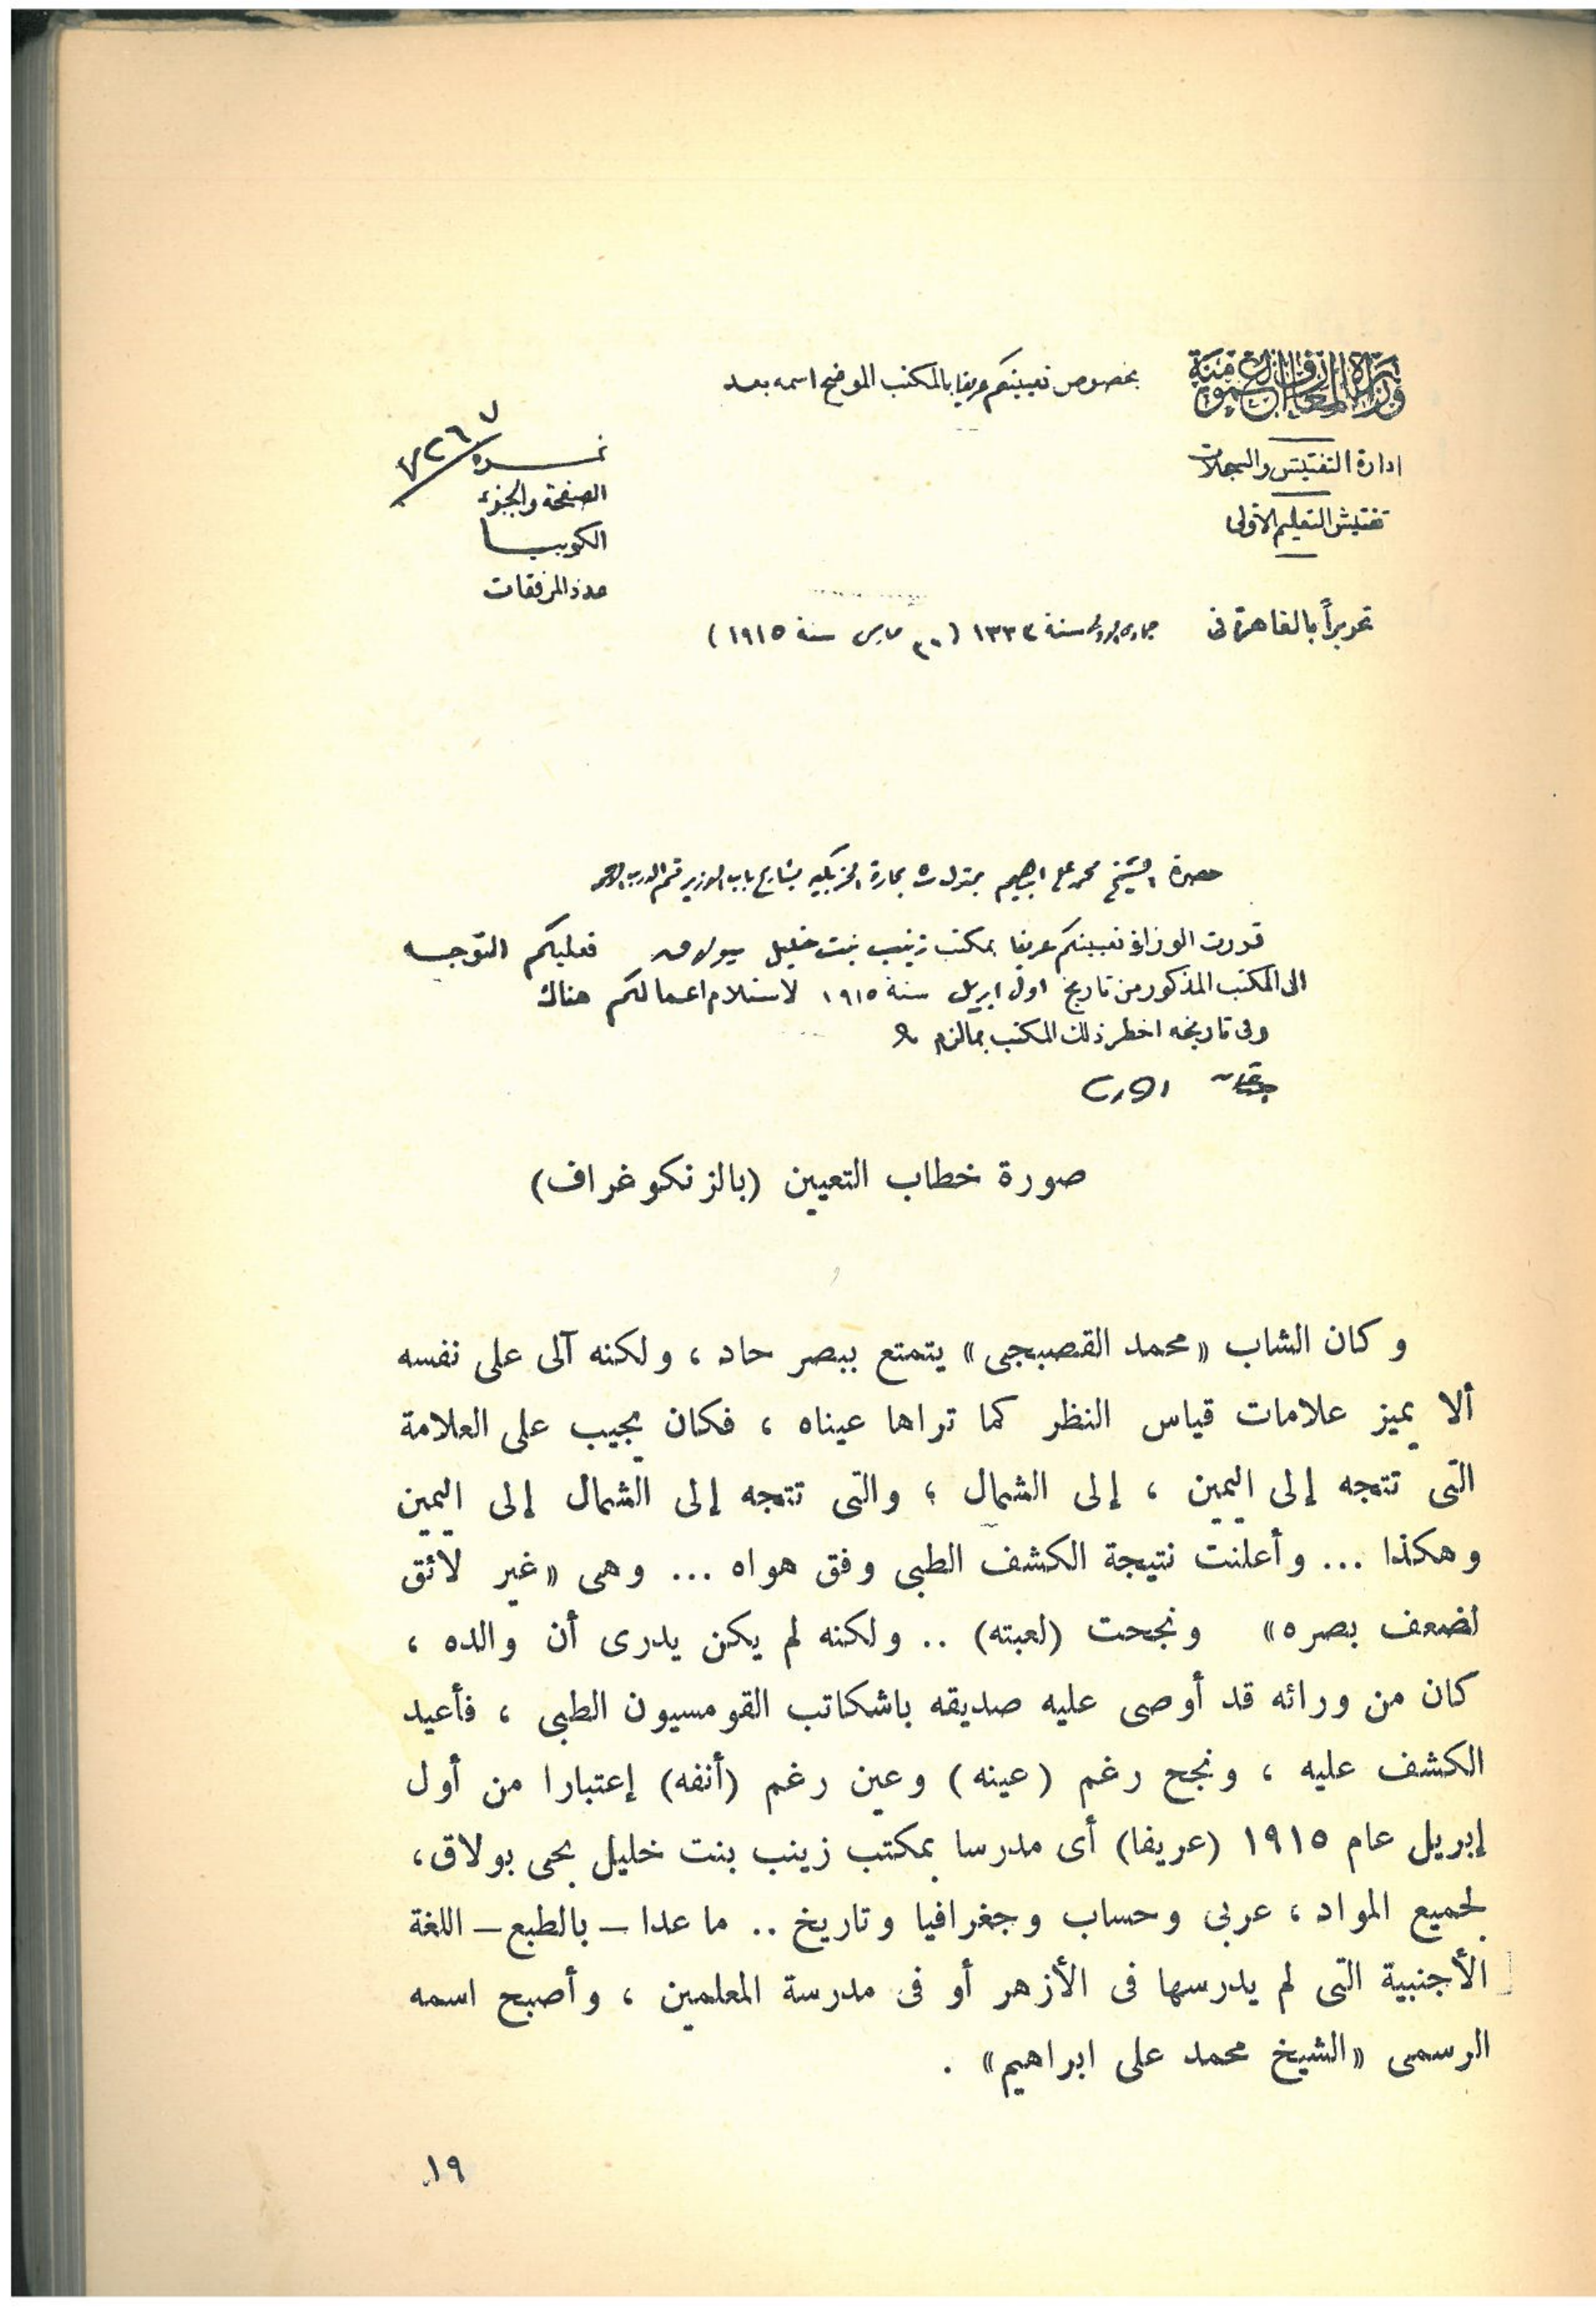 وزارة المعارف العمومية
بخصوص تعيينكم عريفا بالمكتب الموضح اسمه بعد
ادارة التفتيش والسجلات
تفتيش التعليم الأولى
نمــرة
الصفحة والجزء
الكوبيــا
عدد المرفقات
تحريراً بالقاهرة فى جمادى الاولى سنة ١٣٣٣ (٣٠ مارس سنة ١٩١٥)
حضرة الشيخ محمد على ابراهيم بحارة بشارع باب الوزير قسم الدرب الاحمر
قررت الوزارة تعيينكم عريفا بمكتب زينب بنت خليل ببولاق فعليكم التوجـه
الى المكتب المذكور من تاريخ اول ابريل سنة ١٩١٥ لاستلام اعمالكم هناك
وفى تاريخه اخطر ذلك المكتب بما لزم
صورة خطاب التعيين (بالزنكوغراف)
وكان الشاب «محمد القصبجى» يتمتع ببصر حاد ، ولكنه آلى على نفسه
ألا يميز علامات قياس النظر كما تراها عيناه ، فكان يجيب على العلامة
التى تتجه إلى اليمين ، إلى الشمال ؛ والتى تتجه إلى الشمال إلى اليمين
وهكذا ... وأعلنت نتيجة الكشف الطبى وفق هواه ... وهى «غير لائق
لضعف بصره» ونجحت (لعبته) .. ولكنه لم يكن يدرى أن والده ،
كان من ورائه قد أوصى عليه صديقه باشكاتب القومسيون الطبى ، فأعيد
الكشف عليه ، ونجح رغم (عينه) وعين رغم (أنفه) إعتبارا من أول
إبريل عام ١٩١٥ (عريفا) أى مدرسا بمكتب زينب بنت خليل بحى بولاق،
لجميع المواد ، عربى وحساب وجغرافيا وتاريخ .. ما عدا – بالطبع – اللغة
الأجنبية التى لم يدرسها فى الأزهر أو فى مدرسة المعلمين ، وأصبح اسمه
الرسمى «الشيخ محمد على ابراهيم» .
١٩